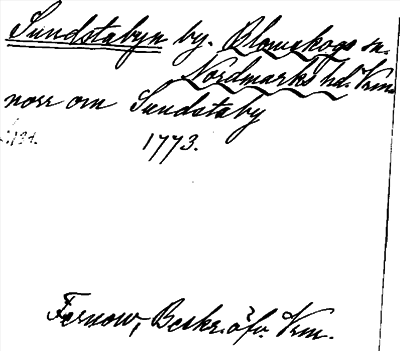 Sundstabyn by. Blomskogs sn.
Nordmarks hd. Vrm.
norr om Sundstaby
1773.
Fernow, Beskr. öfv. Vrm.